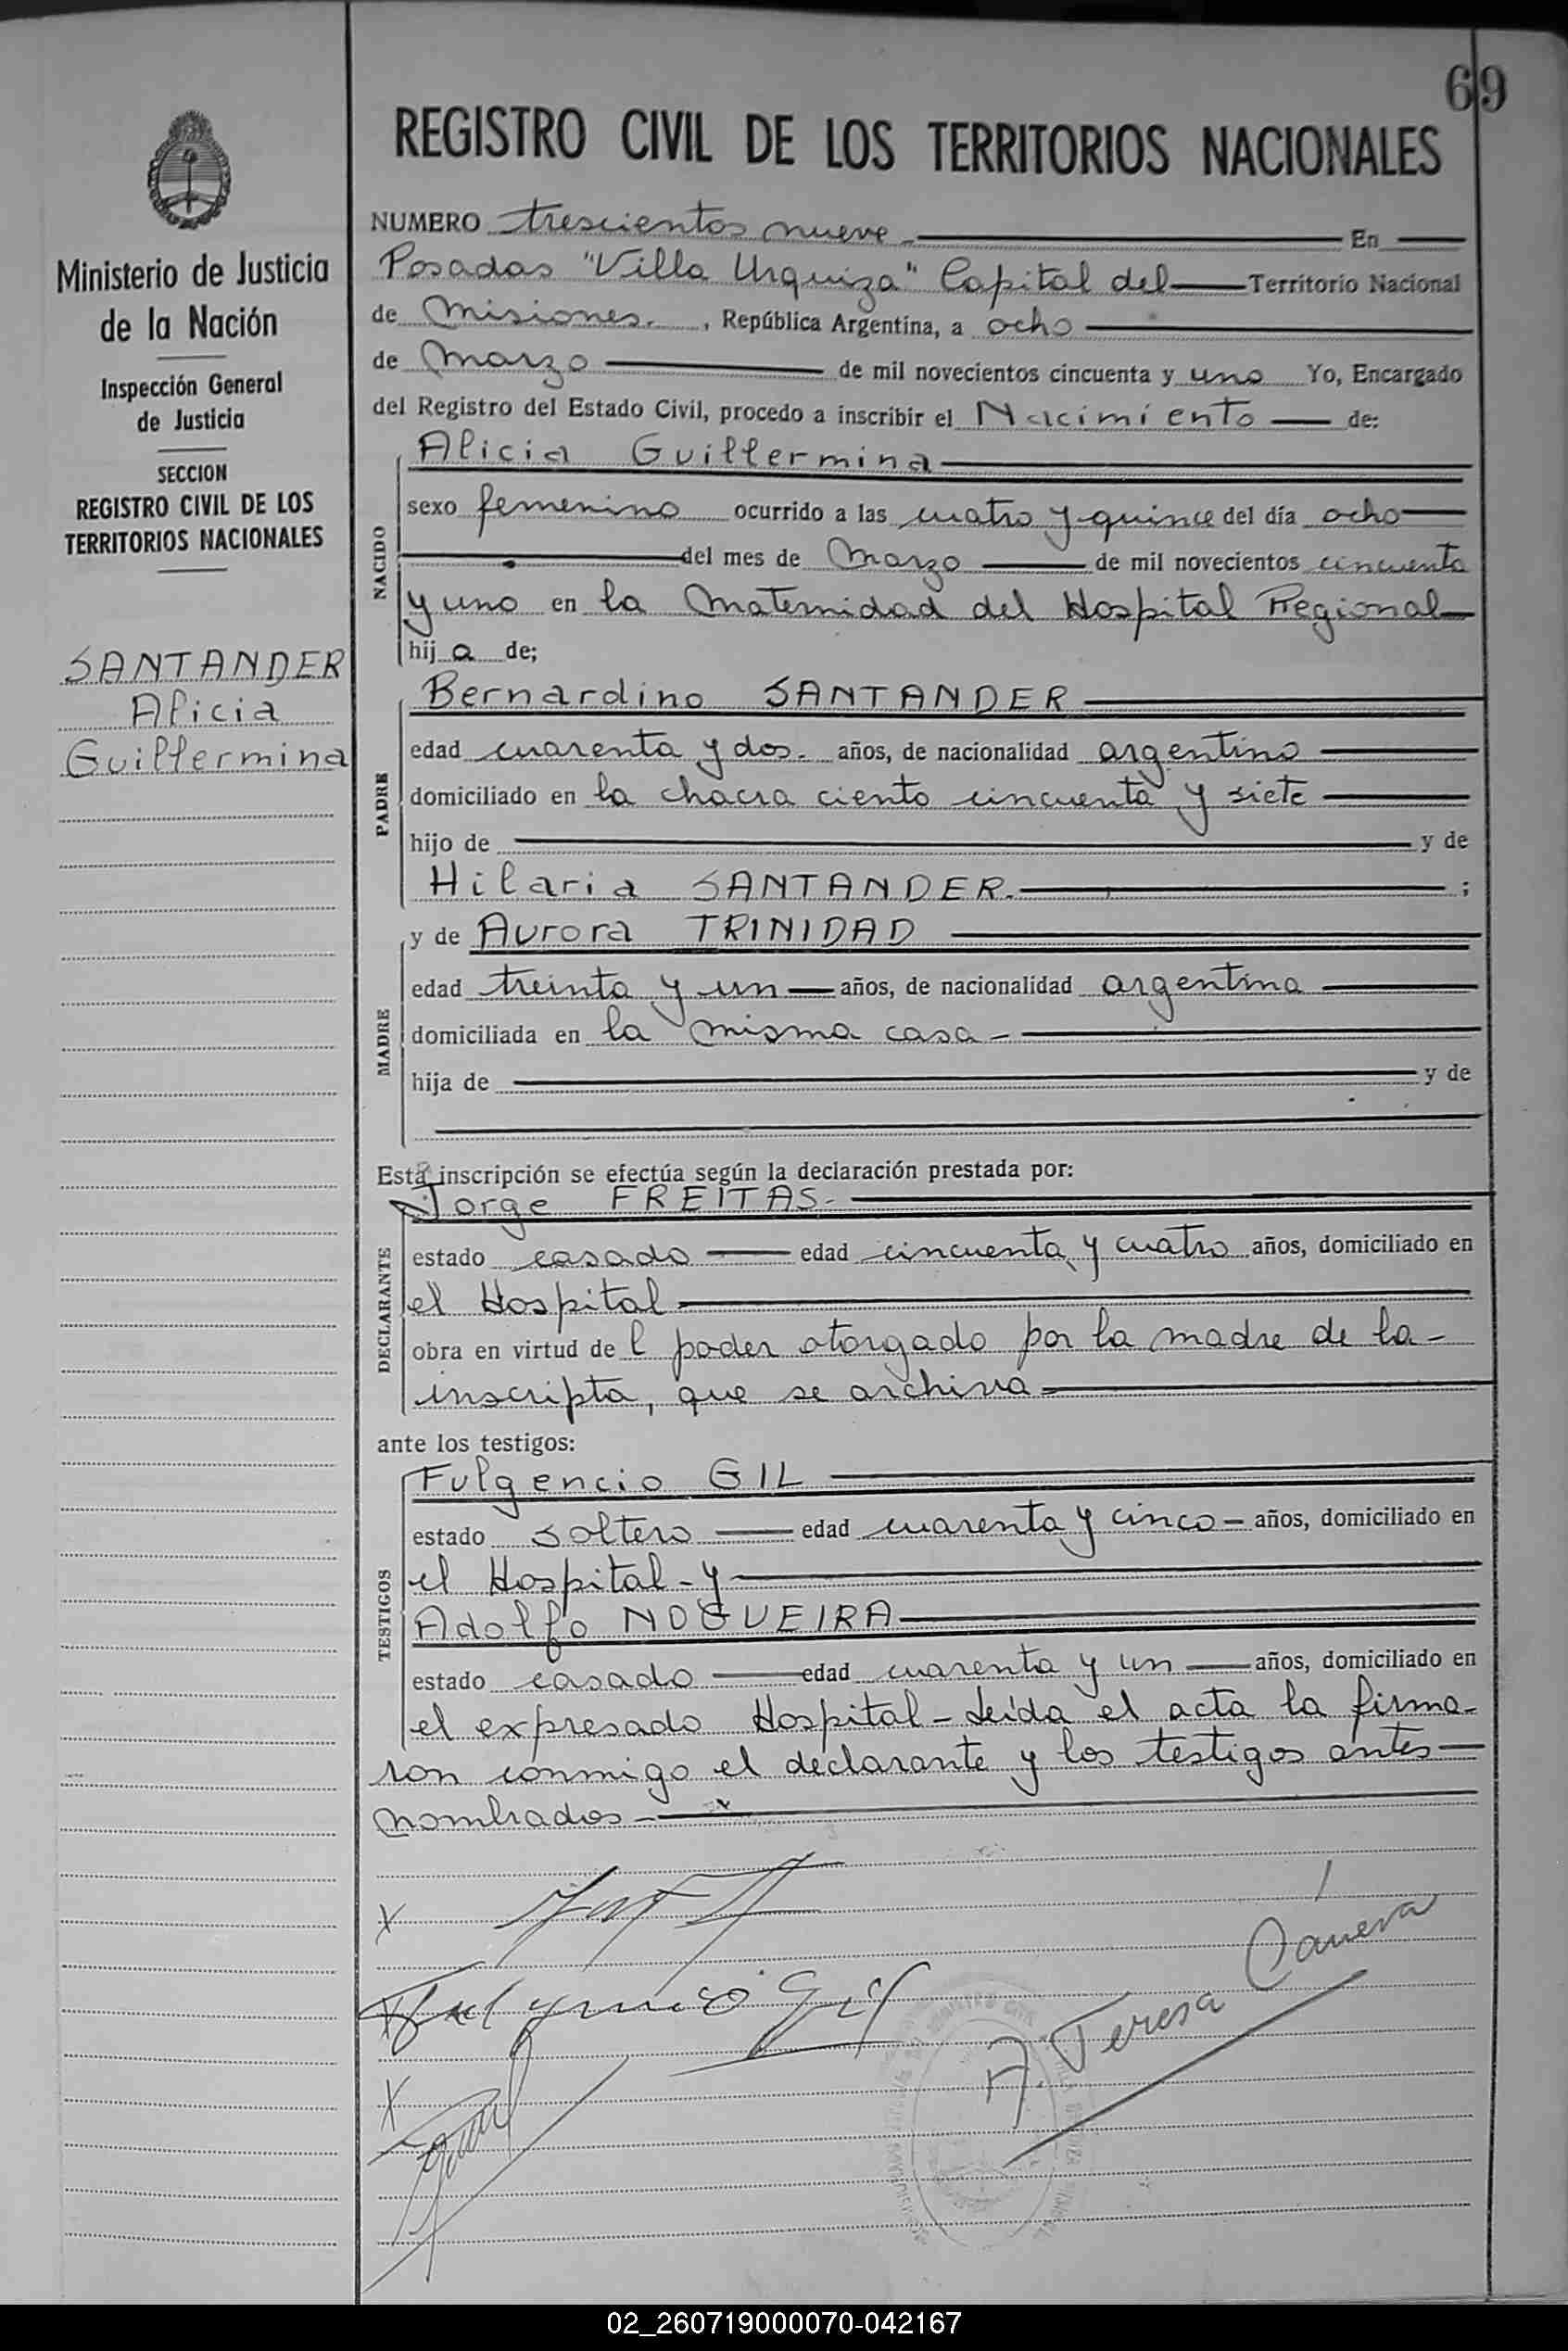 69
REGISTRO CIVIL DE LOS TERRITORIOS NACIONALES
Ministerio de Justicia
de la Nación
Inspección General
de Justicia
SECCION
REGISTRO CIVIL DE LOS
TERRITORIOS NACIONALES
SANTANDER
Alicia
Guillermina
NUMERO trescientos nueve En
Posadas "Villa Urquiza" Capital del Territorio Nacional
de Misiones. , República Argentina, a ocho
de Marzo de mil novecientos cincuenta y uno Yo, Encargado
del Registro del Estado Civil, procedo a inscribir el Nacimiento de:
NACIDO
Alicia Guillermina
sexo femenino ocurrido a las cuatro y quince del día ocho
del mes de Marzo de mil novecientos cincuenta
y uno en la Maternidad del Hospital Regional
hij a de;
PADRE
Bernardino SANTANDER
edad cuarenta y dos. años, de nacionalidad argentino
domiciliado en la chacra ciento cincuenta y siete
hijo de y de
Hilaria SANTANDER. ;
MADRE
y de Aurora TRINIDAD
edad treinta y un años, de nacionalidad argentina
domiciliada en la misma casa -
hija de y de
Esta inscripción se efectúa según la declaración prestada por:
DECLARANTE
Jorge FREITAS.
estado casado edad cincuenta y cuatro años, domiciliado en
el Hospital
obra en virtud de l poder otorgado por la madre de la -
inscripta, que se archiva -
ante los testigos:
TESTIGOS
Fulgencio GIL
estado soltero edad cuarenta y cinco - años, domiciliado en
el Hospital - y
Adolfo NOGUEIRA
estado casado edad cuarenta y un años, domiciliado en
el expresado Hospital - Leída el acta la firma-
ron conmigo el declarante y los testigos antes
nombrados -
X
Fulgencio Gil
X
A. Teresa Cáneva
02_260719000070-042167